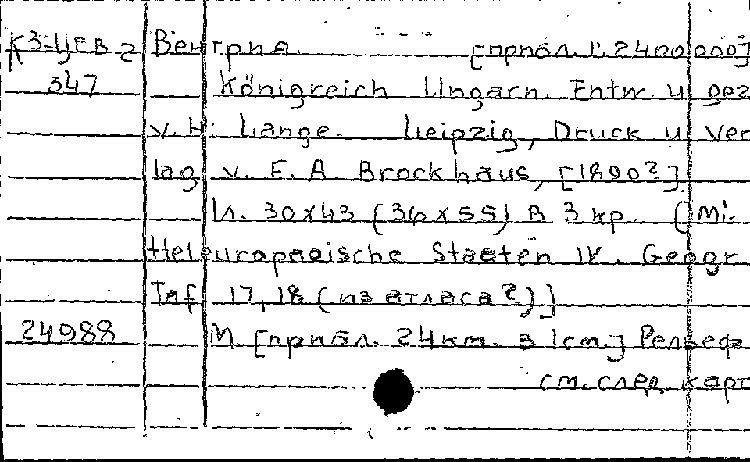 К3-Цев 2 Венгрия. [прибл. 1:2400000]
347 Königreich Ungarn. Entw. u gez
v. H. Lange. Leipzig, Druck u Ver
lag v. F. A. Brockhaus, [1890?]
1л. 30x43 (36x55) в 3 кр. (Mi
tteleuropaeische Staaten IV. Geogr
Taf 17,18 (из атласа?)]
24988 М. [прибл. 24км. в 1см.] Рельеф
см. след карт